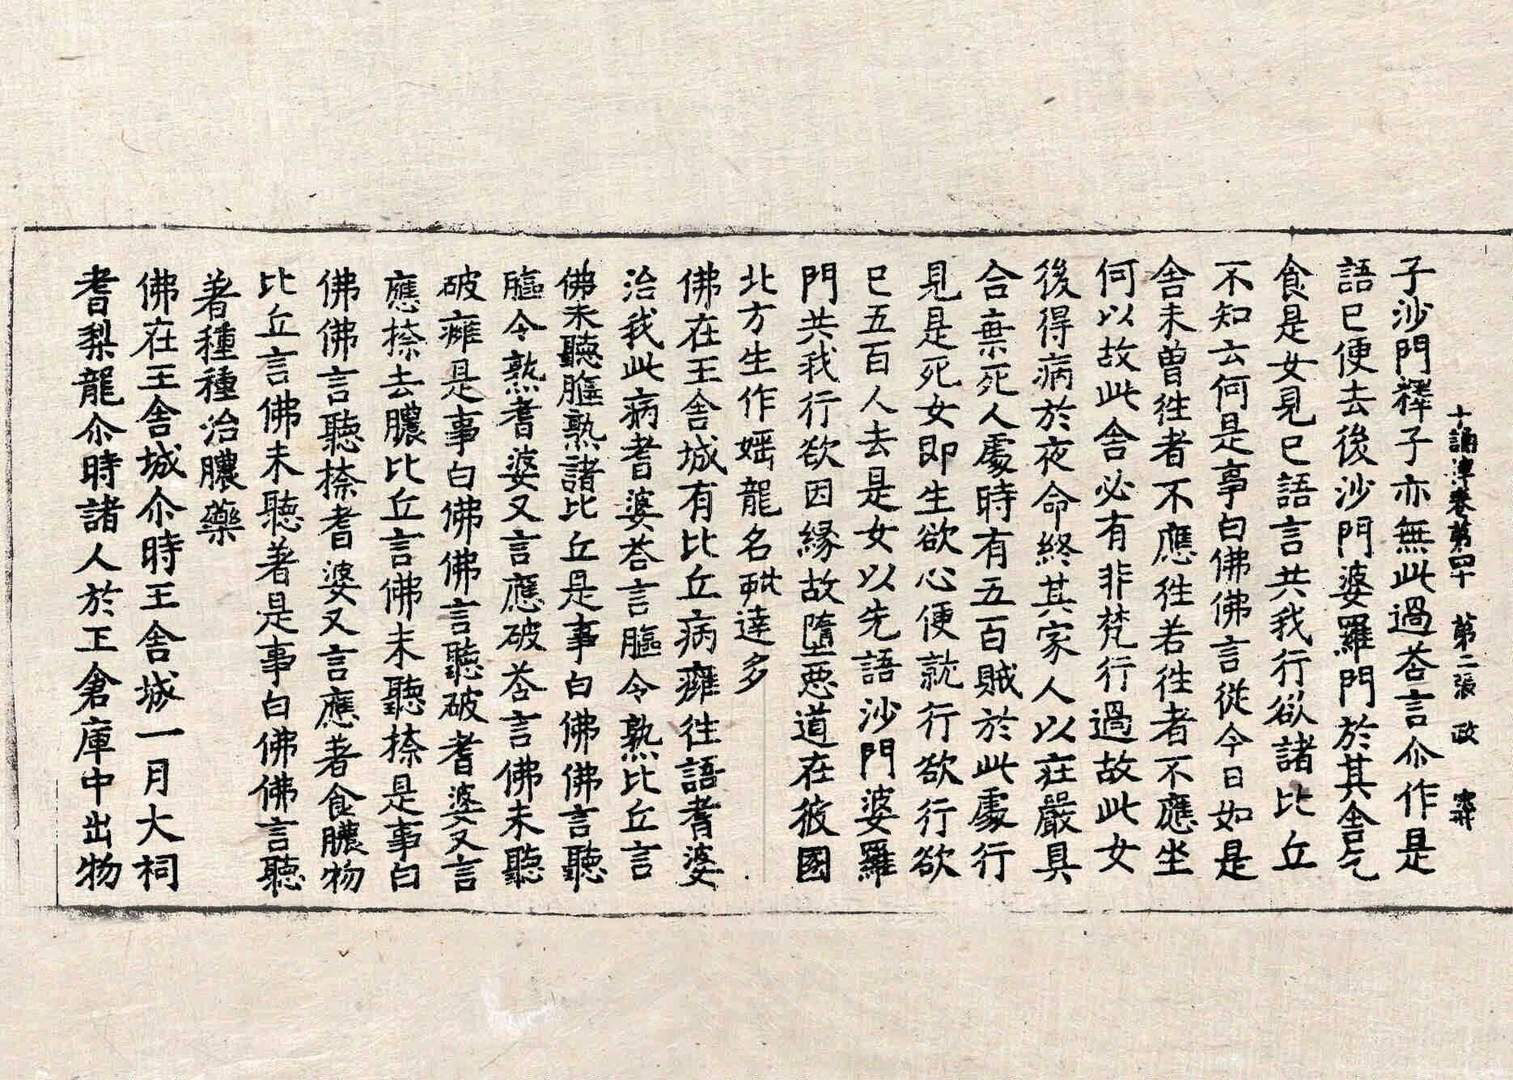 十誦律卷第四十　第二張　政
子沙門釋子亦無此過荅言尒作是
語已便去後沙門婆羅門於其舍乞
食是女見已語言共我行欲諸比丘
不知云何是事白佛佛言從今日如是
舍未曾徃者不應徃若徃者不應坐
何以故此舍必有非梵行過故此女
後得病於夜命終其家人以莊嚴具
合棄死人處時有五百賊於此處行
見是死女即生欲心便就行欲行欲
已五百人去是女以先語沙門婆羅
門共我行欲因縁故墮惡道在彼國
北方生作婬龍名達多
佛在王舍城有比丘病癰徃語耆婆
治我此病耆婆荅言膒令熟比丘言
佛未聽膒熟諸比丘是事白佛佛言聽
膒令熟耆婆又言應破荅言佛未聽
破癰是事白佛佛言聽破耆婆又言
應捺去膿比丘言佛未聽捺是事白
佛佛言聽捺耆婆又言應著食膿物
比丘言佛未聽著是事白佛佛言聽
著種種治膿藥
佛在王舍城尒時王舍城一月大祠
耆梨龍尒時諸人於王倉庫中出物